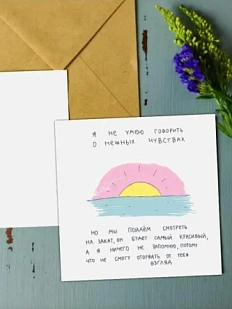 я не умею говорить
о нежных чувствах
но мы пойдём смотреть
на закат, он будет самый красивый,
а я ничего не запомню, потому
что не смогу оторвать от тебя
взгляд